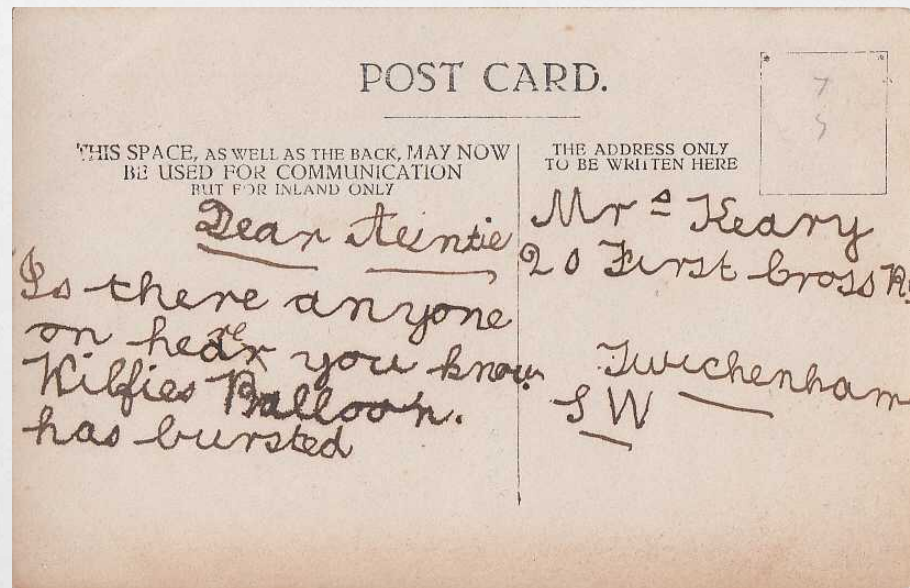 POST CARD.
THIS SPACE, AS WELL AS THE BACK, MAY NOW
BE USED FOR COMMUNICATION
BUT FOR INLAND ONLY
Dear Aeintie
Is there anyone
on heare you know
Wilfies Balloon.
has bursted
THE ADDRESS ONLY
TO BE WRITTEN HERE
Mrs Keary
20 First Cross R
Twichenham
S W